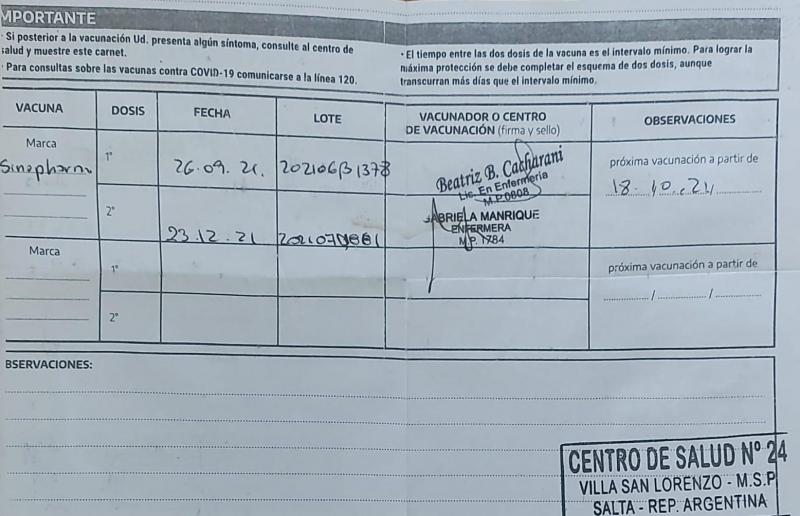 MPORTANTE
· Si posterior a la vacunación Ud. presenta algún síntoma, consulte al centro de
salud y muestre este carnet.
· Para consultas sobre las vacunas contra COVID-19 comunicarse a la línea 120.
· El tiempo entre las dos dosis de la vacuna es el intervalo mínimo. Para lograr la
máxima protección se debe completar el esquema de dos dosis, aunque
transcurran más días que el intervalo mínimo.
VACUNA DOSIS FECHA LOTE VACUNADOR O CENTRO DE VACUNACIÓN (firma y sello) OBSERVACIONES
Marca
Sinopharm 1° 26.09.21. 202106B1378
Beatriz B. Cacharani
Lic. En Enfermería
M.P.0808
próxima vacunación a partir de
18.10.21
2° 23.12.21
GABRIELA MANRIQUE
ENFERMERA
M.P. 1784
Marca
1°
próxima vacunación a partir de
/ /
2°
BSERVACIONES:
CENTRO DE SALUD Nº 24
VILLA SAN LORENZO - M.S.P
SALTA - REP. ARGENTINA